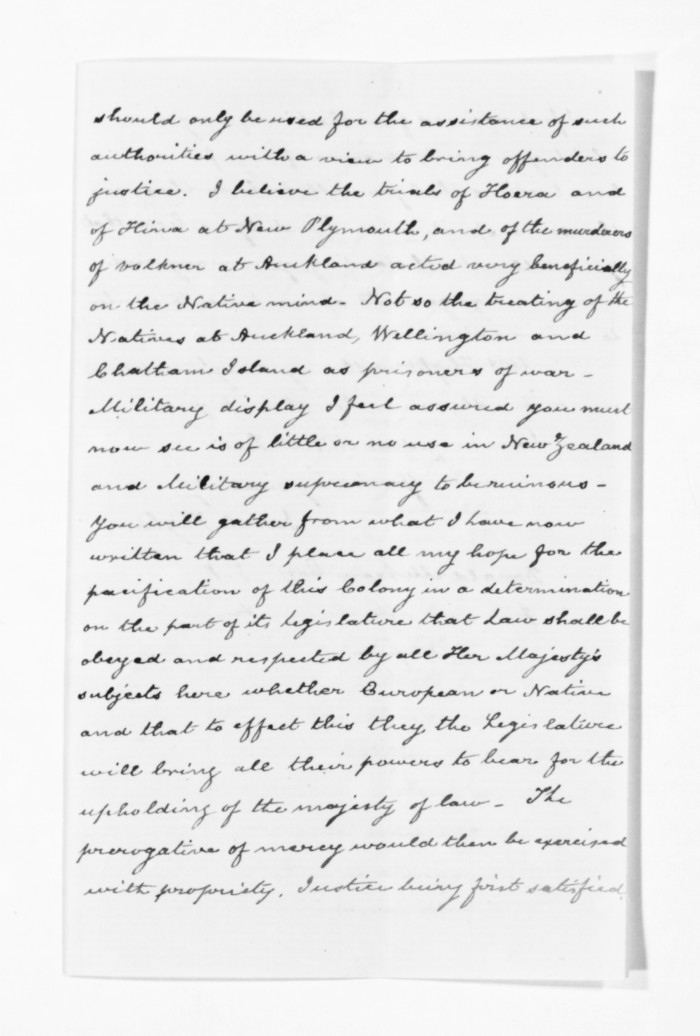 should only be used for the assistance of such
authorities with a view to bring offenders to
justice. I believe the trials of Hoera and
of Hina at New Plymouth, and of the murderers
of volkner at Auckland acted very beneficially
on the Native mind - Not so the treating of the
Natives at Auckland, Wellington and
Chatham Island as prisoners of war -
Military display I feel assured you must
now see is of little or no use in New Zealand
and Military supremacy to be ruinous -
You will gather from what I have now
written that I place all my hope for the
pacification of this Colony in a determination
on the part of its legislature that Law shall be
obeyed and respected by all Her Majesty's
subjects here whether European or Native
and that to effect this they the Legislature
will bring all their powers to bear for the
upholding of the majesty of law - The
prerogative of mercy would then be exercised
with propriety, Justice being first satisfied.